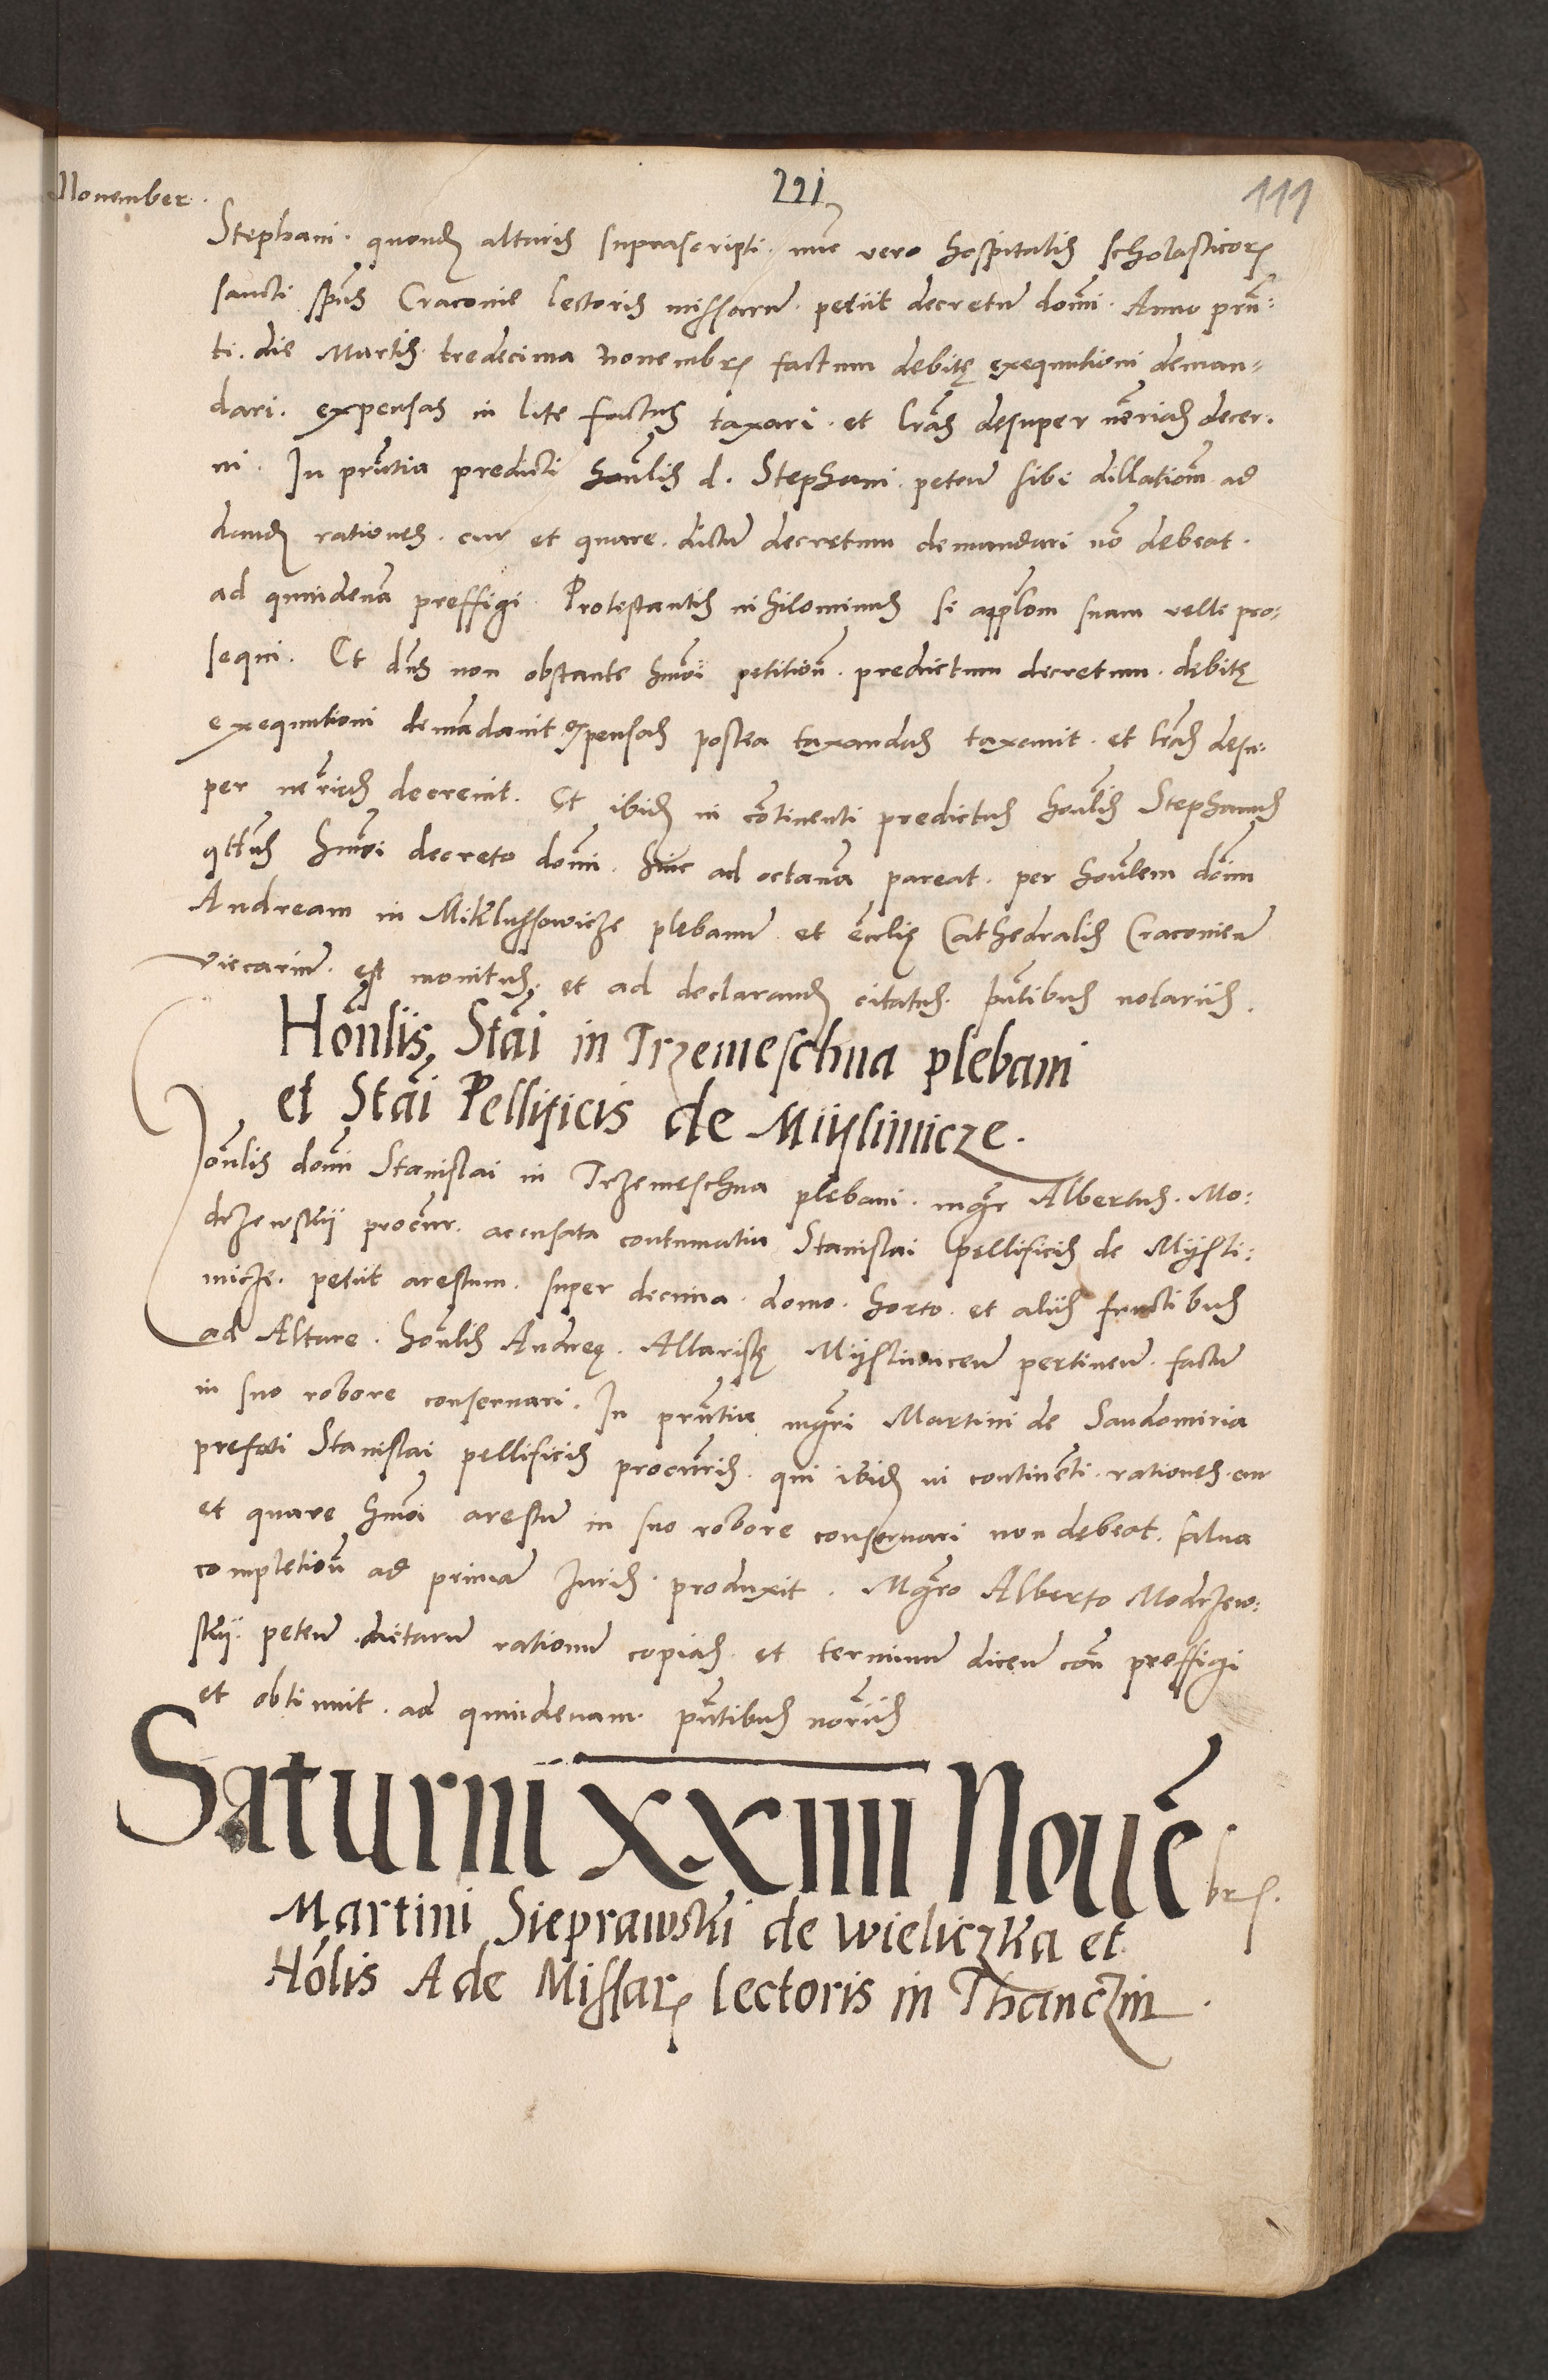 November.
221
111
Stephani. quondam altaris suprascripti. nunc vero hospitalis scholasticorum
sancti spus Cracovie lectoris missarum. petiit decretum domi. Anno prn:
ti. die Martis. tredecima Novembris factum debitę exequutioni deman=
dari. expensas in lite factas taxari. et lras desuper nerias decer.
ni. In prntia predicti honlis d. Stephani. peten sibi dillationem ad
dandum rationes. cur et quare. dictum decretum demandari non debeat.
ad quindenam preffigi. Protestantis nihilominus se applom suam velle pro:
sequi. Et dns non obstante hmoi petitione. predictum decretum. debitę
exequutioni demandavit expensas postea taxandas taxavit. et lras desu:
per nerias decrevit. Et ibidem in continenti predictus honlis Stephanus
quatenus hmoi decreto domi. hinc ad octavam pareat. per honlem dom
Andream in Miklussowicze plebanum et ecclię Cathedralis Cracovien
viccarium. est monitus. et ad declarandum citatus. pntibus notariis.
Honlis Stai in Trzemeschna plebani
et Stai Pellificis de Miislimicze.
Honlis domi Stanislai in Trzemeschna plebani. mgr Albertus. Mo:
drzewskij procur. accusata contumatia Stanislai pellificis de Mijsli:
micze. petiit arestum. super decima. domo. horto. et aliis fructibus
ad Altare. honlis Andreę. Altaristę Mijslimicen pertinen. factum
in suo robore conservari. In prntia mgri Martini de Sandomiria
prefati Stanislai pellificis procuris. qui ibidem in continenti. rationes. cur
et quare hmoi arestum in suo robore conservari non debeat. salva
completione ad primam Iuris. produxit. Mgro Alberto Modrzew:
skij. peten. dictarum rationum copias. et terminum dicen con preffigi
et obtinuit. ad quindenam. pntibus noriis
Saturni XXIIII Novem
bris.
Martini Sieprawski de Wieliczka et
Honlis Ade Missarum lectoris in Thanczin.